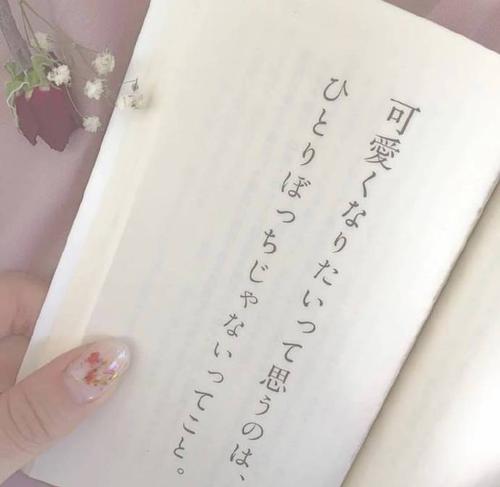 可愛くなりたいって思うのは、
ひとりぼっちじゃないってこと。